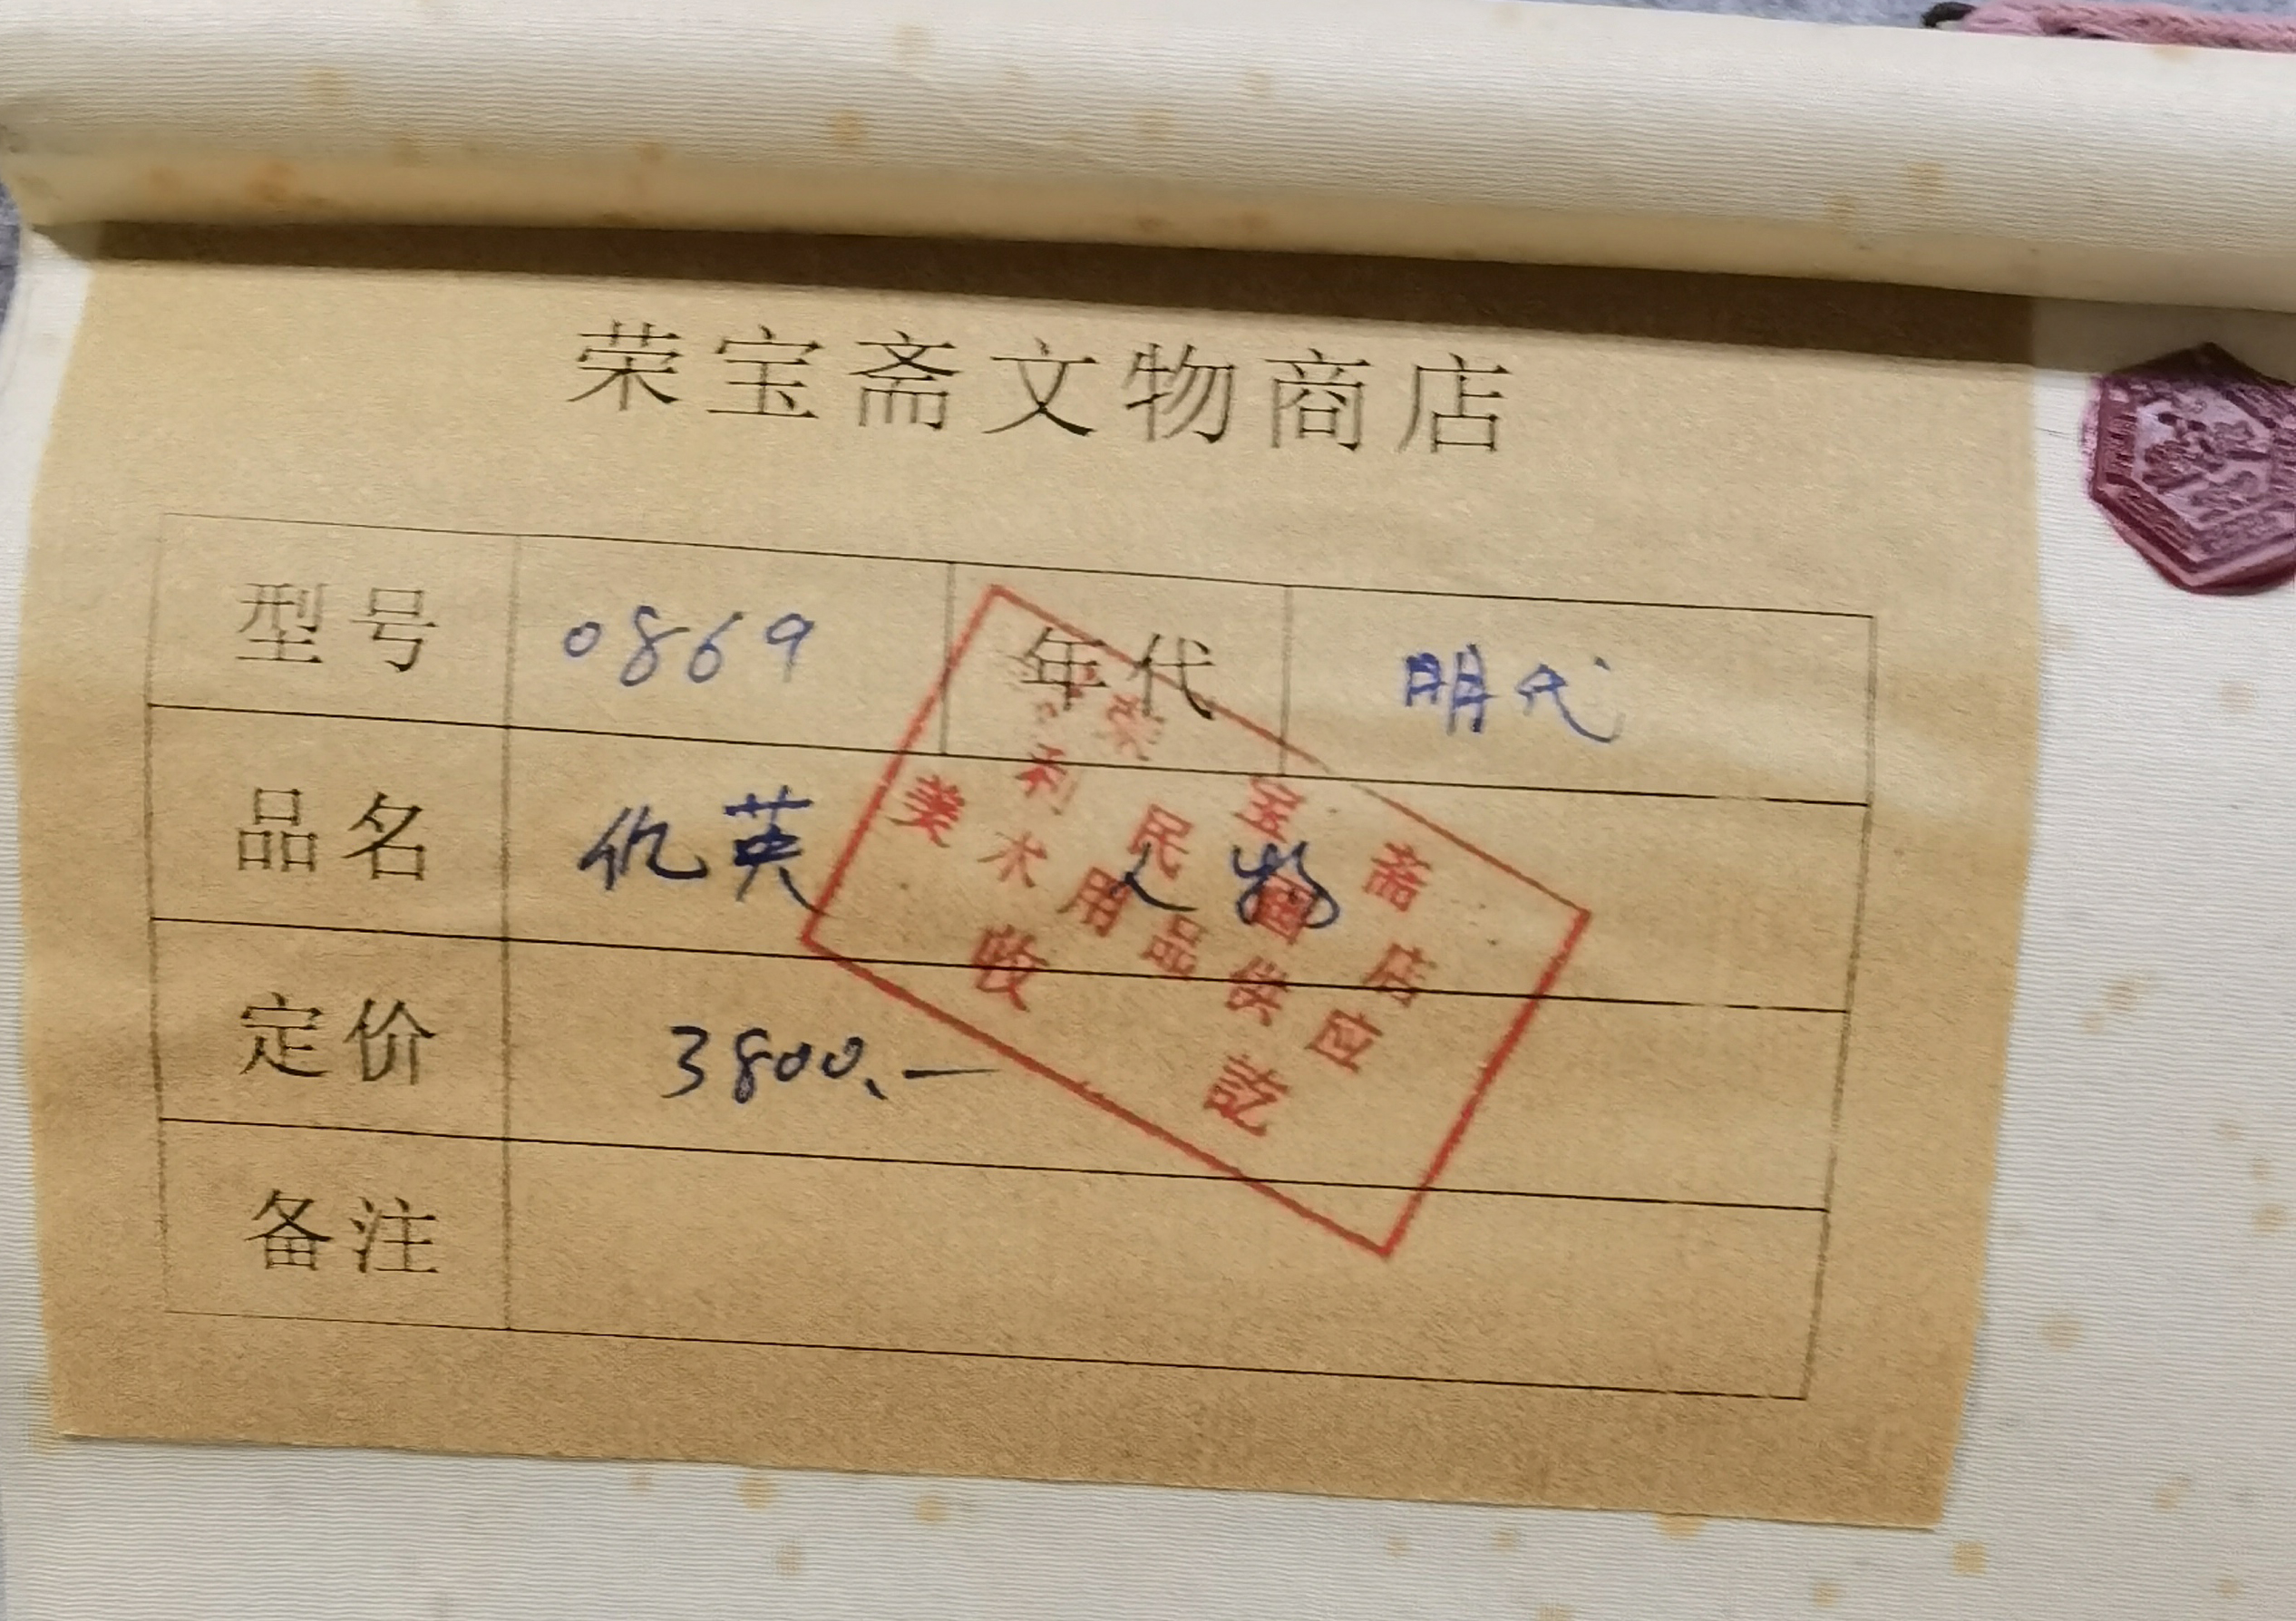 荣宝斋文物商店
型号 0869 年代 明代
品名 仇英 人物
定价 3800.—
备注
荣宝斋
利民画店
美术用品供应
收訖